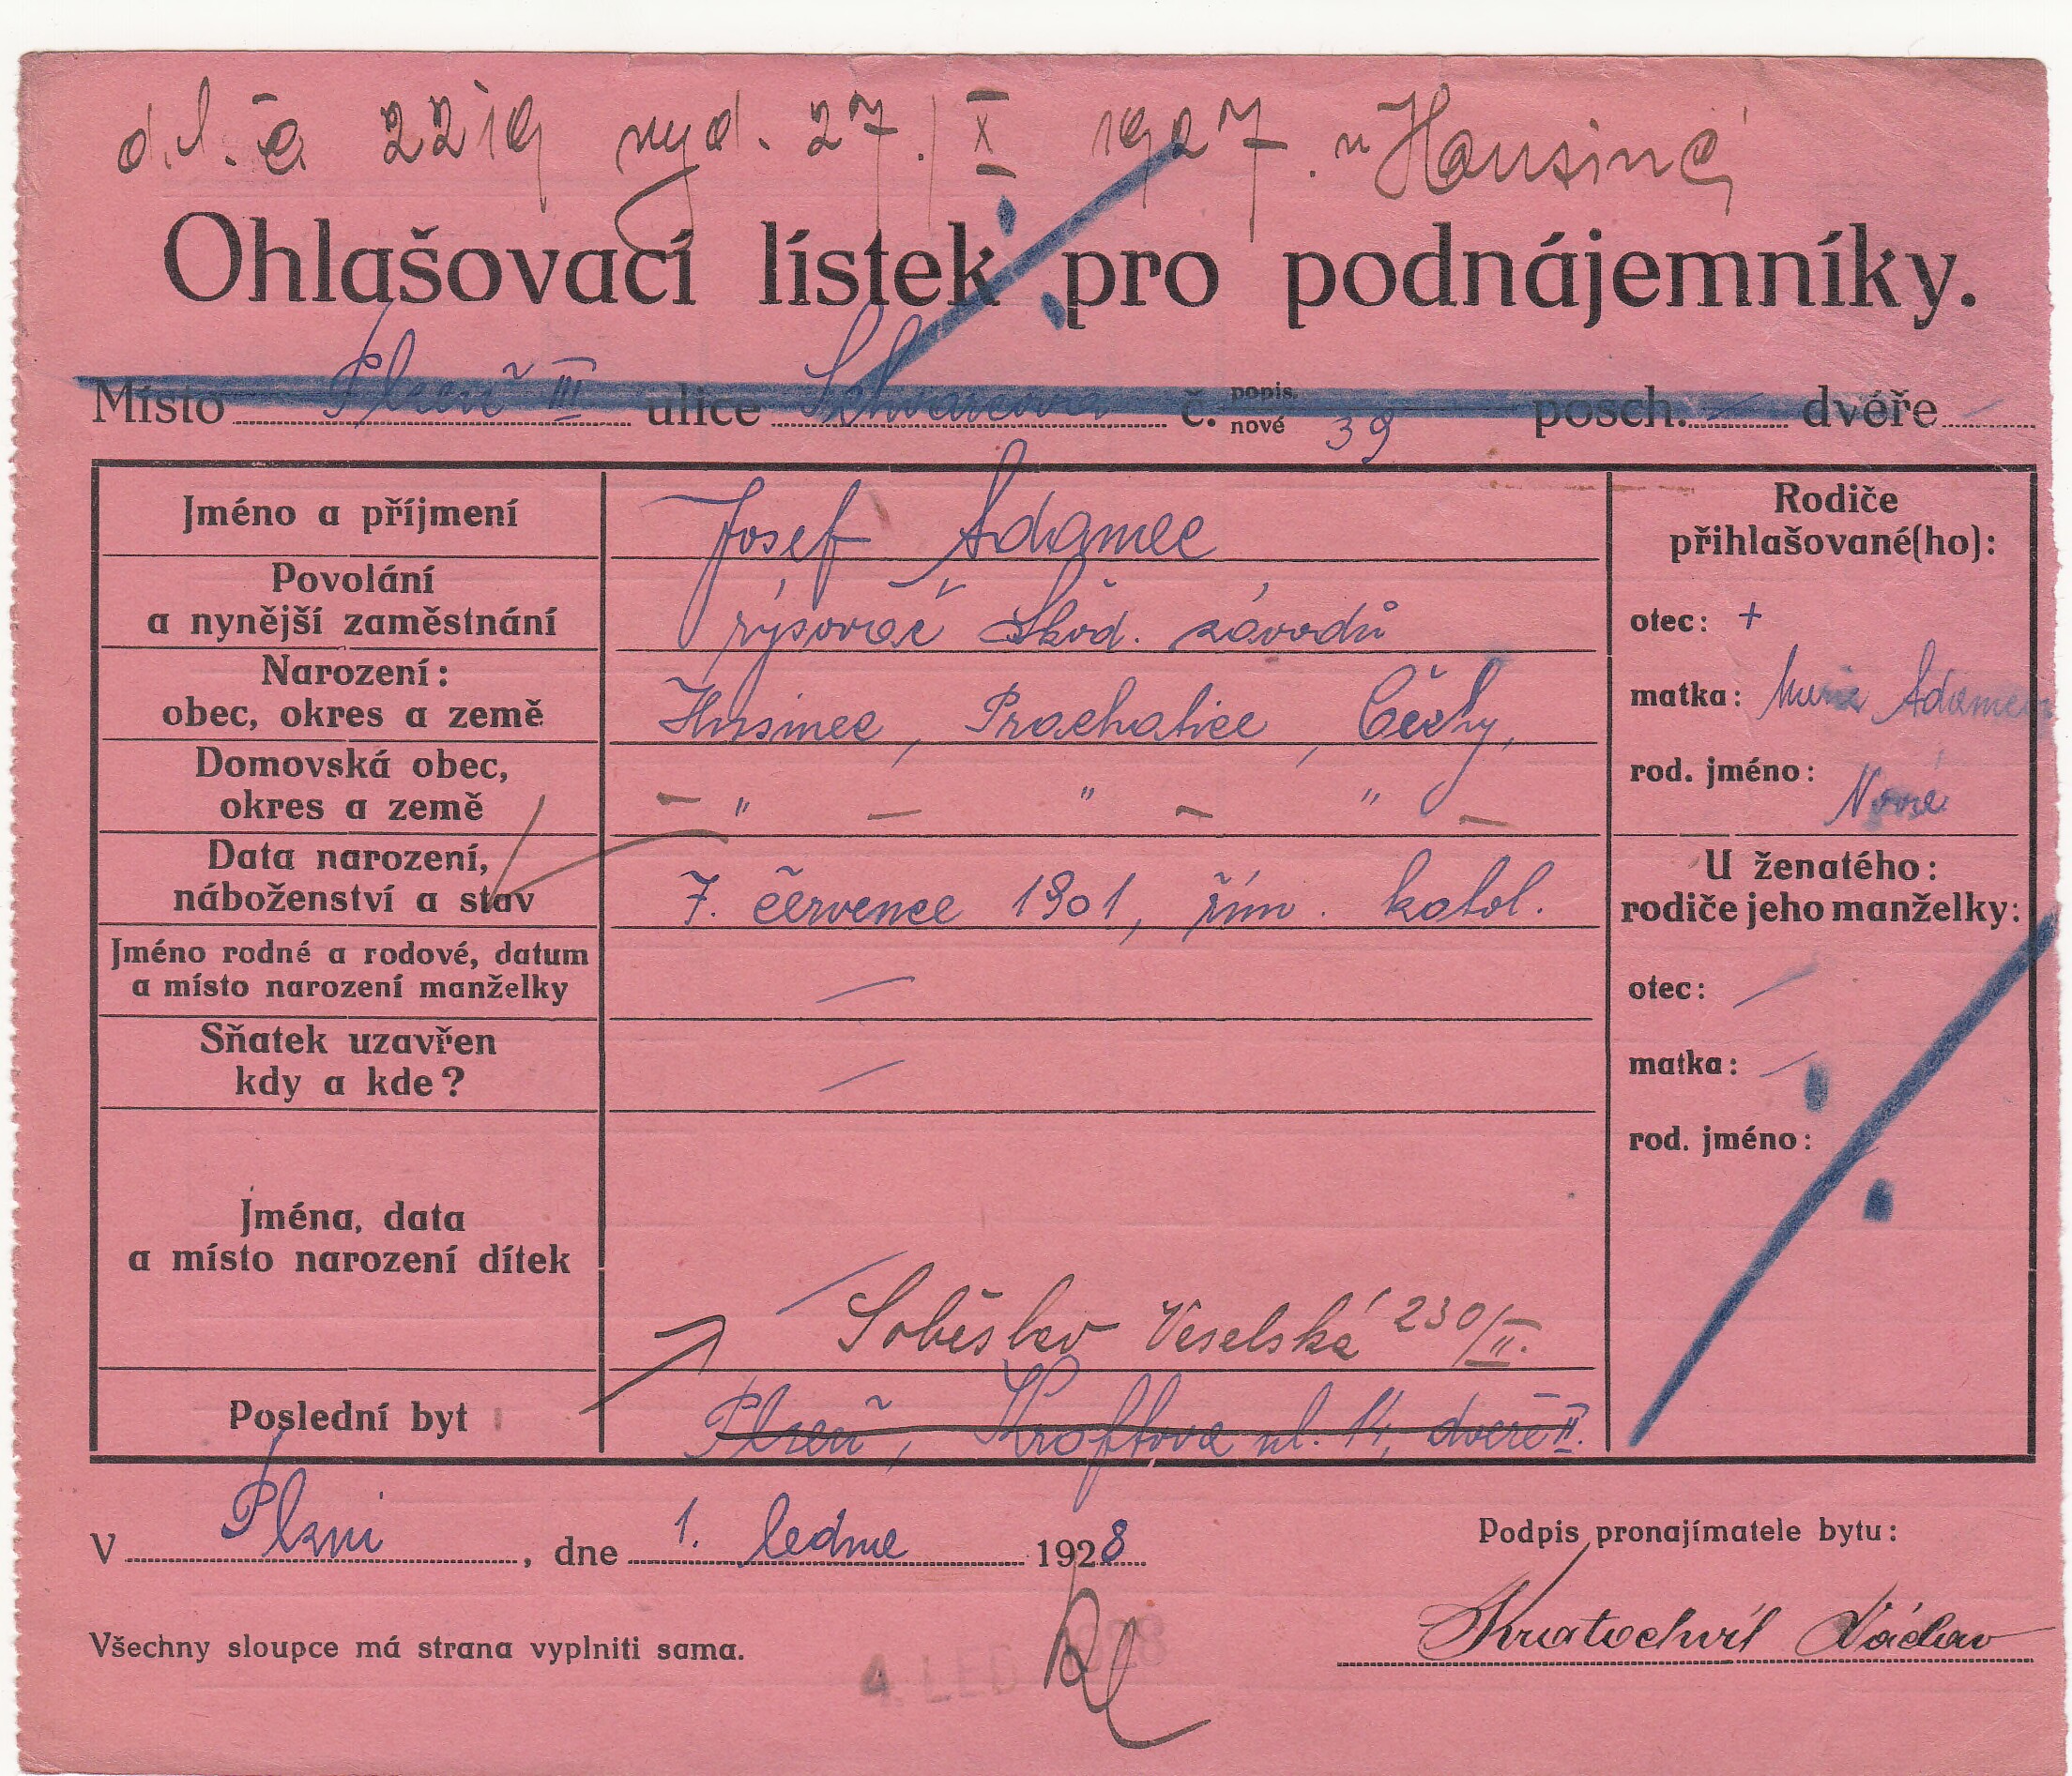 d.l.č. 2219 vyd. 27./X 1927. v Husinci
Ohlašovací lístek pro podnájemníky.
Místo Plzeň III ulice Schwarcova č. popis. nové 39 posch. — dvéře —
Jméno a příjmení Josef Adamec
Povolání
a nynější zaměstnání rýsovač Škod. závodů
Narození:
obec, okres a země Husinec, Prachatice, Čechy,
Domovská obec,
okres a země — " — " — " —
Data narození,
náboženství a stav 7. července 1901, řím. katol.
Jméno rodné a rodové, datum
a místo narození manželky —
Sňatek uzavřen
kdy a kde? —
Jména, data
a místo narození dítek —
Soběslav Veselská 230/II.
Poslední byt Plzeň, Kroftova ul. 14, dveře II.
Rodiče
přihlašované(ho):
otec: +
matka: Marie Adamec
rod. jméno:
U ženatého:
rodiče jeho manželky:
otec: —
matka: —
rod. jméno:
V Plzni, dne 1. ledna 1928
Podpis pronajímatele bytu:
Kratochvíl Václav
Všechny sloupce má strana vyplniti sama.
4. LED 1928